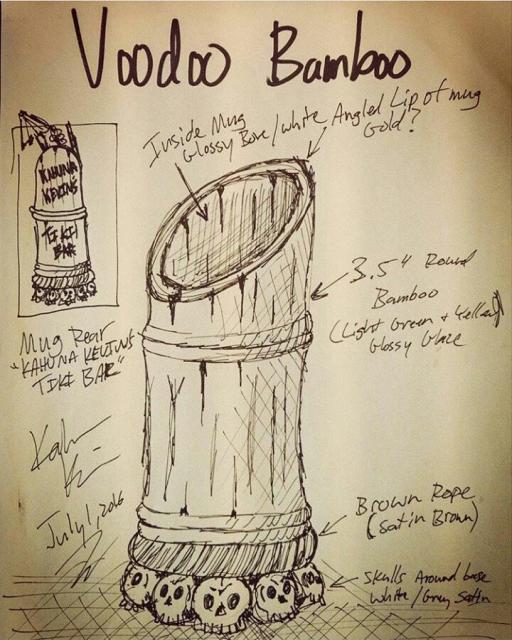 Voodoo Bamboo
Inside Mug
Glossy Bone/White
Angled Lip of mug
Gold?
KAHUNA
KEVINS
TIKI
BAR
3.5" Round
Bamboo
(Light Green + Yellow)
Glossy Glaze
Mug Rear
"KAHUNA KEVINS
TIKI BAR"
July 1, 2016
Brown Rope
(Satin Brown)
Skulls Around base
White/Grey Satin